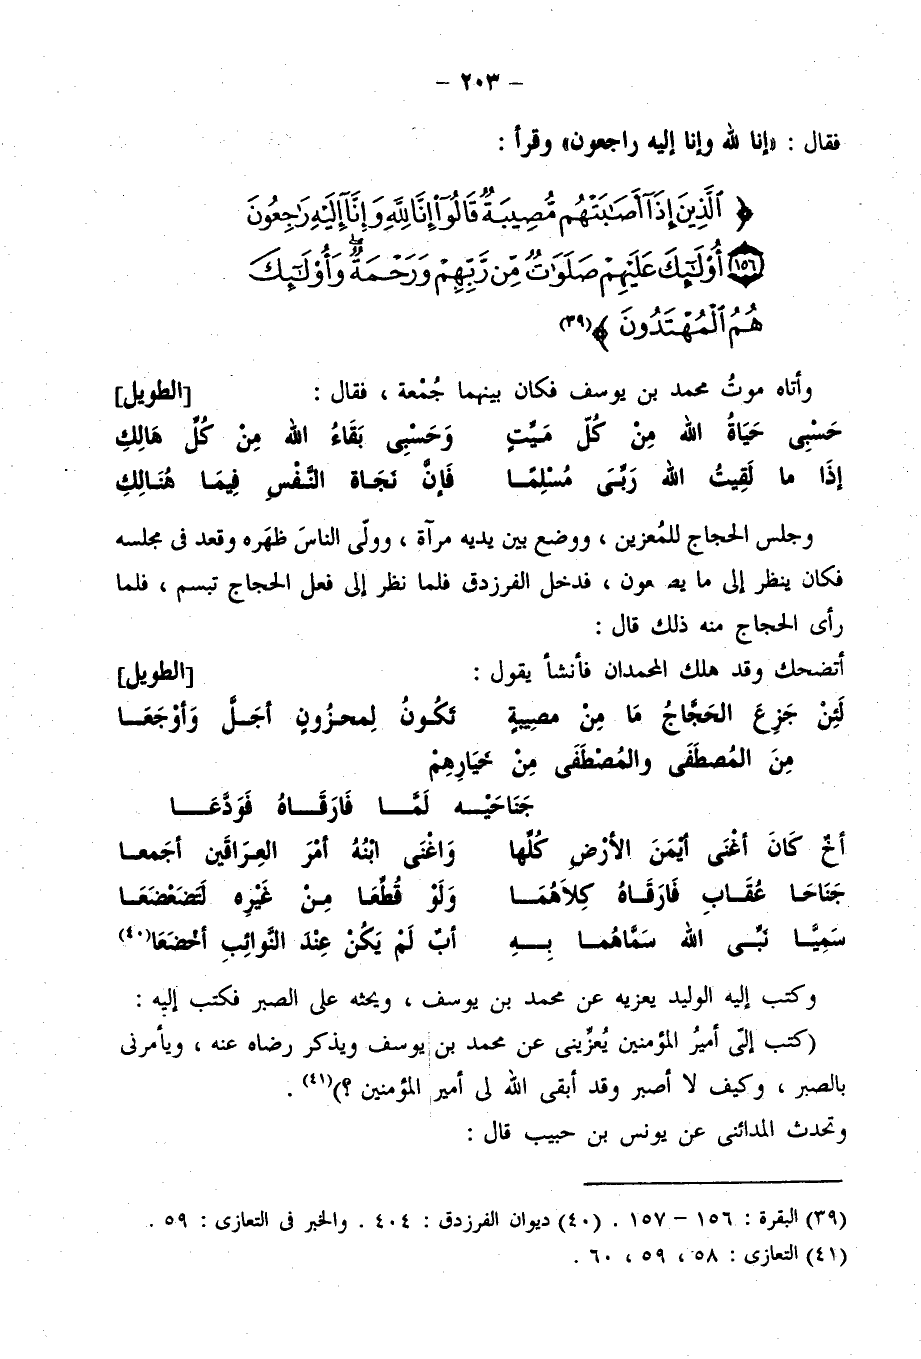 – ٢٠٣ –
فقال : «إنا لله وإنا إليه راجعون» وقرأ :
﴿ ٱلَّذِينَ إِذَآ أَصَٰبَتْهُم مُّصِيبَةٌ قَالُوٓا۟ إِنَّا لِلَّهِ وَإِنَّآ إِلَيْهِ رَٰجِعُونَ
١٥٦ أُو۟لَٰٓئِكَ عَلَيْهِمْ صَلَوَٰتٌ مِّن رَّبِّهِمْ وَرَحْمَةٌ ۖ وَأُو۟لَٰٓئِكَ
هُمُ ٱلْمُهْتَدُونَ ﴾(٣٩)
وأتاه موتُ محمد بن يوسف فكان بينهما جُمْعة ، فقال : [الطويل]
حَسْبِى حَيَاةُ الله مِنْ كُلّ مَيَّتٍ وَحَسْبِى بَقَاءُ الله مِنْ كُلِّ هَالِكِ
إذَا ما لَقِيتُ الله رَبَّىَ مُسْلِمًا فَإنَّ نَجَاة النَّفْسِ فِيمَا هُنَالِكِ
وجلس الحجاج للمُعزين ، ووضع بين يديه مرآة ، وولّى الناسَ ظهَره وقعد فى مجلسه
فكان ينظر إلى ما يصـ ـعون ، فدخل الفرزدق فلما نظر إلى فعل الحجاج تبسم ، فلما
رأى الحجاج منه ذلك قال :
أتضحك وقد هلك المحمدان فأنشأ يقول : [الطويل]
لَئِنْ جَزِعَ الحَجَّاجُ مَا مِنْ مصيبةٍ تَكُونُ لِمحزُونٍ أجَلَّ وَأوْجَعَا
مِنَ المُصطَفَى والمُصْطَفَى مِنْ خيَارِهِمْ
جَنَاحَيْه لَمَّا فَارَقَاهُ فَوَدَّعَا
أخٌ كَانَ أغْنَى أيْمَنَ الأرْضِ كُلّها وَاغْنَى ابْنُهُ أمْرَ العِرَاقَين أجَمعا
جَنَاحَا عُقَابٍ فَارَقَاهُ كِلاَهُمَا وَلَوْ قُطِّعَا مِنْ غَيْرِه لَتَضَعْضَعَا
سَمِيَّا نَبِّى الله سَمَّاهُما بِهِ أبٌ لَمْ يَكُنْ عِنْدَ النَّوائِبِ أخْضَعَا(٤٠)
وكتب إليه الوليد يعزيه عن محمد بن يوسف ، ويحثه على الصبر فكتب إليه :
(كتب إلىّ أميرُ المؤمنين يُعزِّينى عن محمد بن يوسف ويذكر رضاه عنه ، ويأمرنى
بالصبر ، وكيف لا أصبر وقد أبقى الله لى أمير المؤمنين ؟)(٤١) .
وتحدث المدائنى عن يونس بن حبيب قال :
(٣٩) البقرة : ١٥٦ – ١٥٧ . (٤٠) ديوان الفرزدق : ٤٠٤ . والخبر فى التعازى : ٥٩ .
(٤١) التعازى : ٥٨ ، ٥٩ ، ٦٠ .